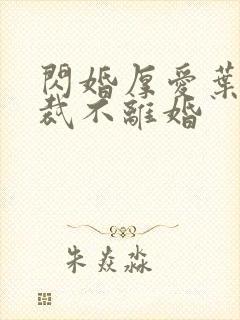 閃婚厚愛葉
裁不離婚
朱焱淼